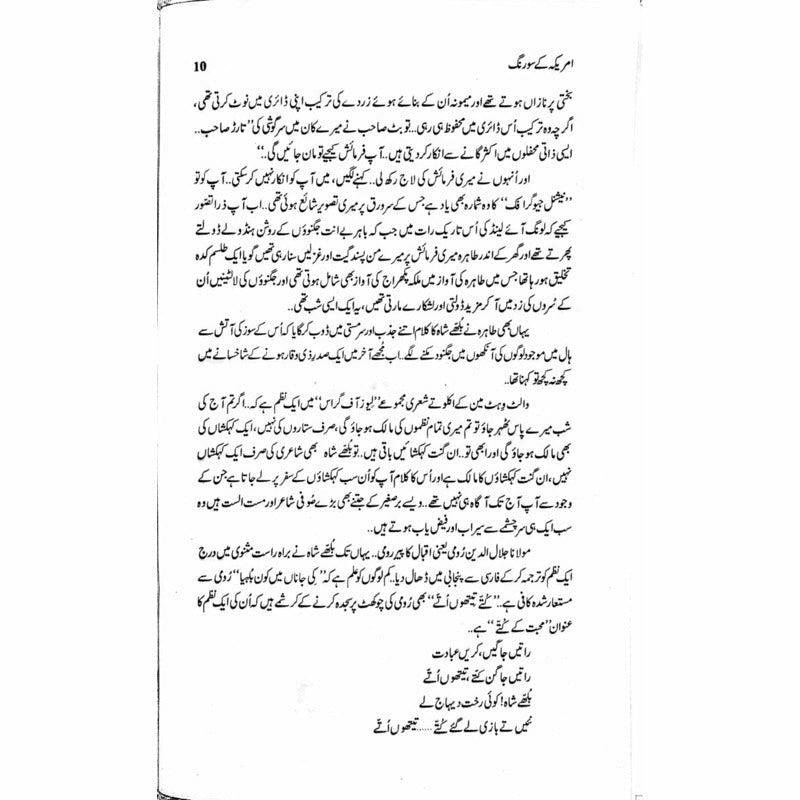 امریکہ کے سو رنگ
10
بختی پر نازاں ہوتے تھے اور میمونہ اُن کے بنائے ہوئے زردے کی ترکیب اپنی ڈائری میں نوٹ کرتی تھی،
اگرچہ وہ ترکیب اُس ڈائری میں محفوظ ہی رہی.. تو بٹ صاحب نے میرے کان میں سرگوشی کی ”تارڑ صاحب..
ایسی ذاتی محفلوں میں اکثر گانے سے انکار کر دیتی ہیں.. آپ فرمائش کیجیے تو مان جائیں گی..“
اور اُنہوں نے میری فرمائش کی لاج رکھ لی.. کہنے لگیں، میں آپ کو انکار نہیں کر سکتی.. آپ کو تو
”نیشنل جیوگرافک“ کا وہ شمارہ بھی یاد ہے جس کے سرورق پر میری تصویر شائع ہوئی تھی.. اب آپ ذرا تصور
کیجیے کہ لونگ آئے لینڈ کی اُس تاریک رات میں جب کہ باہر بے انت جگنوؤں کے روشن ہنڈولے ڈولتے
پھرتے تھے اور گھر کے اندر طاہرہ میری فرمائش پر میرے من پسند گیت اور غزلیں سنا رہی تھیں گویا ایک طلسم کدہ
تخلیق ہو رہا تھا جس میں طاہرہ کی آواز میں ملکہ پکھراج کی آواز بھی شامل ہوتی تھی اور جگنوؤں کی لالٹینیں اُن
کے سُروں کی زد میں آ کر مزید ڈولتی اور لشکارے مارتی تھیں، یہ ایک ایسی شب تھی..
یہاں بھی طاہرہ نے بُلھے شاہ کا کلام اتنے جذب اور سرمستی میں ڈوب کر گایا کہ اُس کے سوز کی آتش سے
ہال میں موجود لوگوں کی آنکھوں میں جگنو دمکنے لگے.. اب مُجھے آخر میں ایک صدرِ ذی وقار ہونے کے شاخسانے میں
کچھ نہ کچھ تو کہنا تھا..
والٹ وہٹ مین کے اکلوتے شعری مجموعے ”لیوز آف گراس“ میں ایک نظم ہے کہ.. اگر تم آج کی
شب میرے پاس ٹھہر جاؤ تو تم میری تمام نظموں کی مالک ہو جاؤ گی، صرف ستاروں کی نہیں، ایک کہکشاں کی
بھی مالک ہو جاؤ گی اور ابھی تو.. ان گنت کہکشائیں باقی ہیں.. تو بُلھے شاہ بھی شاعری کی صرف ایک کہکشاں
نہیں، ان گنت کہکشاؤں کا مالک ہے اور اُس کا کلام آپ کو اُن سب کہکشاؤں کے سفر پر لے جاتا ہے جن کے
وجود سے آپ آج تک آگاہ ہی نہیں تھے.. ویسے برصغیر کے جتنے بھی بڑے صُوفی شاعر اور مست الست ہیں وہ
سب ایک ہی سرچشمے سے سیراب اور فیض یاب ہوتے ہیں..
مولانا جلال الدین رُومی یعنی اقبال کا پیرِ رومی.. یہاں تک بُلھے شاہ نے براہ راست مثنوی میں درج
ایک نظم کو ترجمہ کر کے فارسی سے پنجابی میں ڈھال دیا.. کم لوگوں کو علم ہے کہ ”کی جاناں میں کون بلھیا“ رُومی سے
مستعار شدہ کافی ہے.. ”کُتے تیتھوں اُتے“ بھی رُومی کی چوکھٹ پر سجدہ کرنے کے کرشمے ہیں کہ اُن کی ایک نظم کا
عنوان ”محبت کے کُتے“ ہے..
راتیں جاگیں، کریں عبادت
راتیں جاگن کُتے، تیتھوں اُتے
بُلھے شاہ! کوئی رخت ویہاج لے
نئیں تے بازی لے گئے کُتے...... تیتھوں اُتے